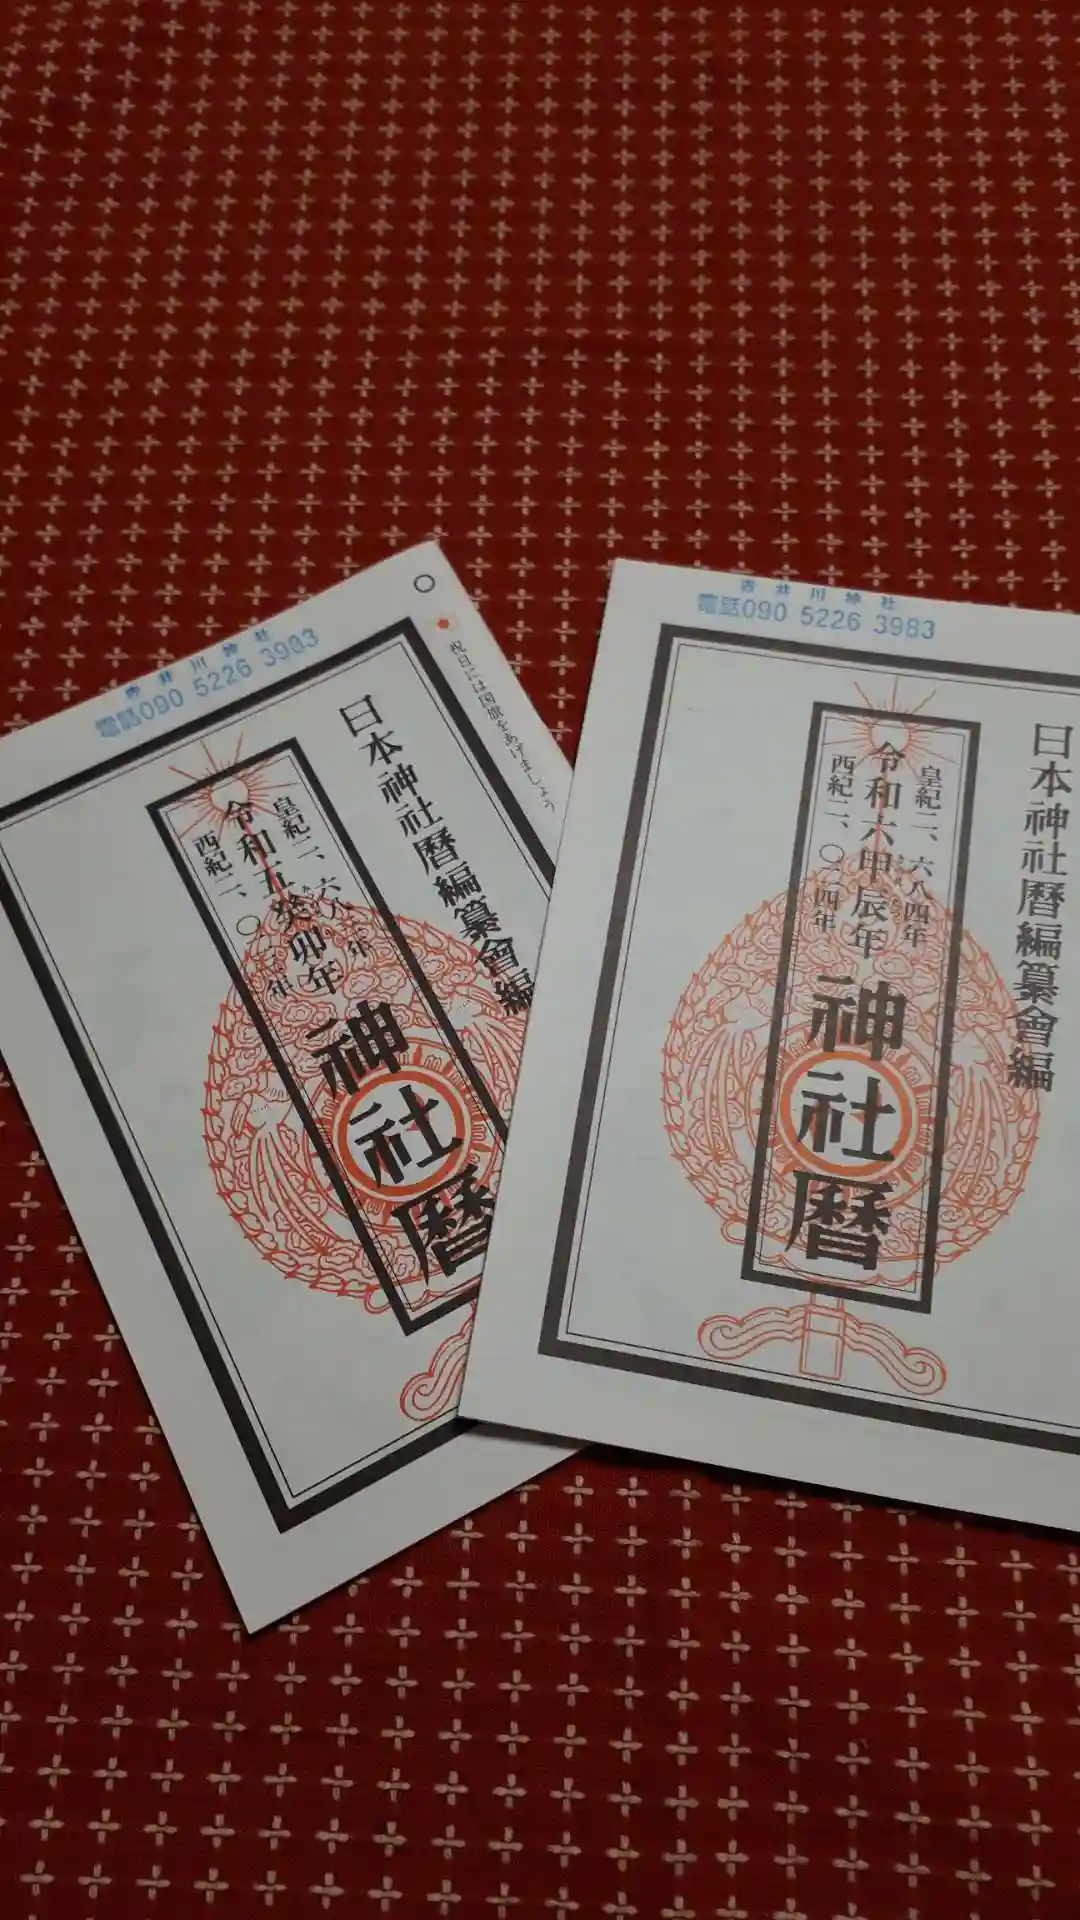 井川神社
電話090 5226 3983
祝日には国旗をあげましょう
日本神社暦編纂會編
皇紀二、六八 年
令和五癸卯年
西紀二、〇 年
神社暦
井川神社
電話090 5226 3983
日本神社暦編纂會編
皇紀二、六八四年
令和六甲辰年
西紀二、〇二四年
神社暦